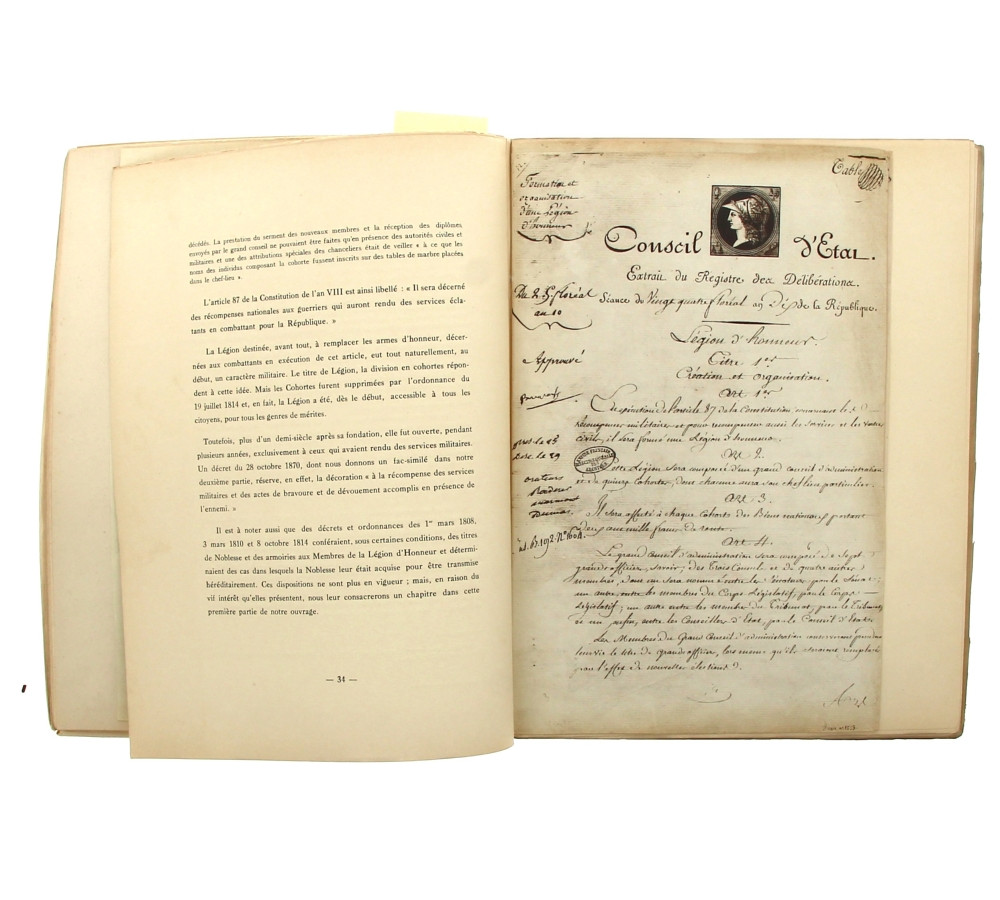 décédés. La prestation du serment des nouveaux membres et la réception des diplômes
envoyés par le grand conseil ne pouvaient être faites qu'en présence des autorités civiles et
militaires et une des attributions spéciales des chanceliers était de veiller « à ce que les
noms des individus composant la cohorte fussent inscrits sur des tables de marbre placées
dans le chef-lieu ».
L'article 87 de la Constitution de l'an VIII est ainsi libellé : « Il sera décerné
des récompenses nationales aux guerriers qui auront rendu des services écla-
tants en combattant pour la République. »
La Légion destinée, avant tout, à remplacer les armes d'honneur, décer-
nées aux combattants en exécution de cet article, eut tout naturellement, au
début, un caractère militaire. Le titre de Légion, la division en cohortes répon-
dent à cette idée. Mais les Cohortes furent supprimées par l'ordonnance du
19 juillet 1814 et, en fait, la Légion a été, dès le début, accessible à tous les
citoyens, pour tous les genres de mérites.
Toutefois, plus d'un demi-siècle après sa fondation, elle fut ouverte, pendant
plusieurs années, exclusivement à ceux qui avaient rendu des services militaires.
Un décret du 28 octobre 1870, dont nous donnons un fac-similé dans notre
deuxième partie, réserve, en effet, la décoration « à la récompense des services
militaires et des actes de bravoure et de dévouement accomplis en présence de
l'ennemi. »
Il est à noter aussi que des décrets et ordonnances des 1er mars 1808,
3 mars 1810 et 8 octobre 1814 conféraient, sous certaines conditions, des titres
de Noblesse et des armoiries aux Membres de la Légion d'Honneur et détermi-
naient des cas dans lesquels la Noblesse leur était acquise pour être transmise
héréditairement. Ces dispositions ne sont plus en vigueur ; mais, en raison du
vif intérêt qu'elles présentent, nous leur consacrerons un chapitre dans cette
première partie de notre ouvrage.
— 34 —
Table
Formation et
organisation
d'une Légion
d'honneur
Conseil d'Etat.
Extrait du Registre des Délibérations.
Du 25 floréal
an 10
Séance du Vingt quatre floréal an Dix de la République.
Légion d'honneur.
Titre 1er
Approuvé
Création et organisation.
Art 1er
En exécution de l'article 87 de la Constitution concernant les
récompenses militaires et pour récompenser aussi les services et les vertus
civils, il sera formé une Légion d'honneur.
Art 2.
Cette Légion sera composée d'un grand conseil d'administration
et de quinze cohortes, dont chacune aura son chef lieu particulier.
orateurs
Dumas
Art 3.
Il sera affecté à chaque cohorte des Biens nationaux portant
deux cens mille francs de rente.
Art 4.
Le grand conseil d'administration sera composé de Sept
grands officiers, savoir ; des trois Consuls et de quatre autres
membres, dont un sera nommé entre les Sénateurs par le Sénat ;
un autre entre les membres du Corps Législatif, par le Corps
Législatif ; un autre entre les membres du Tribunat, par le Tribunat,
et un enfin, entre les Conseillers d'Etat, par le Conseil d'Etat.
Les Membres du Grand Conseil d'administration conserveront pendant
leur vie le titre de grand officier, lors même qu'ils seraient remplacés
par l'effet de nouvelles élections.